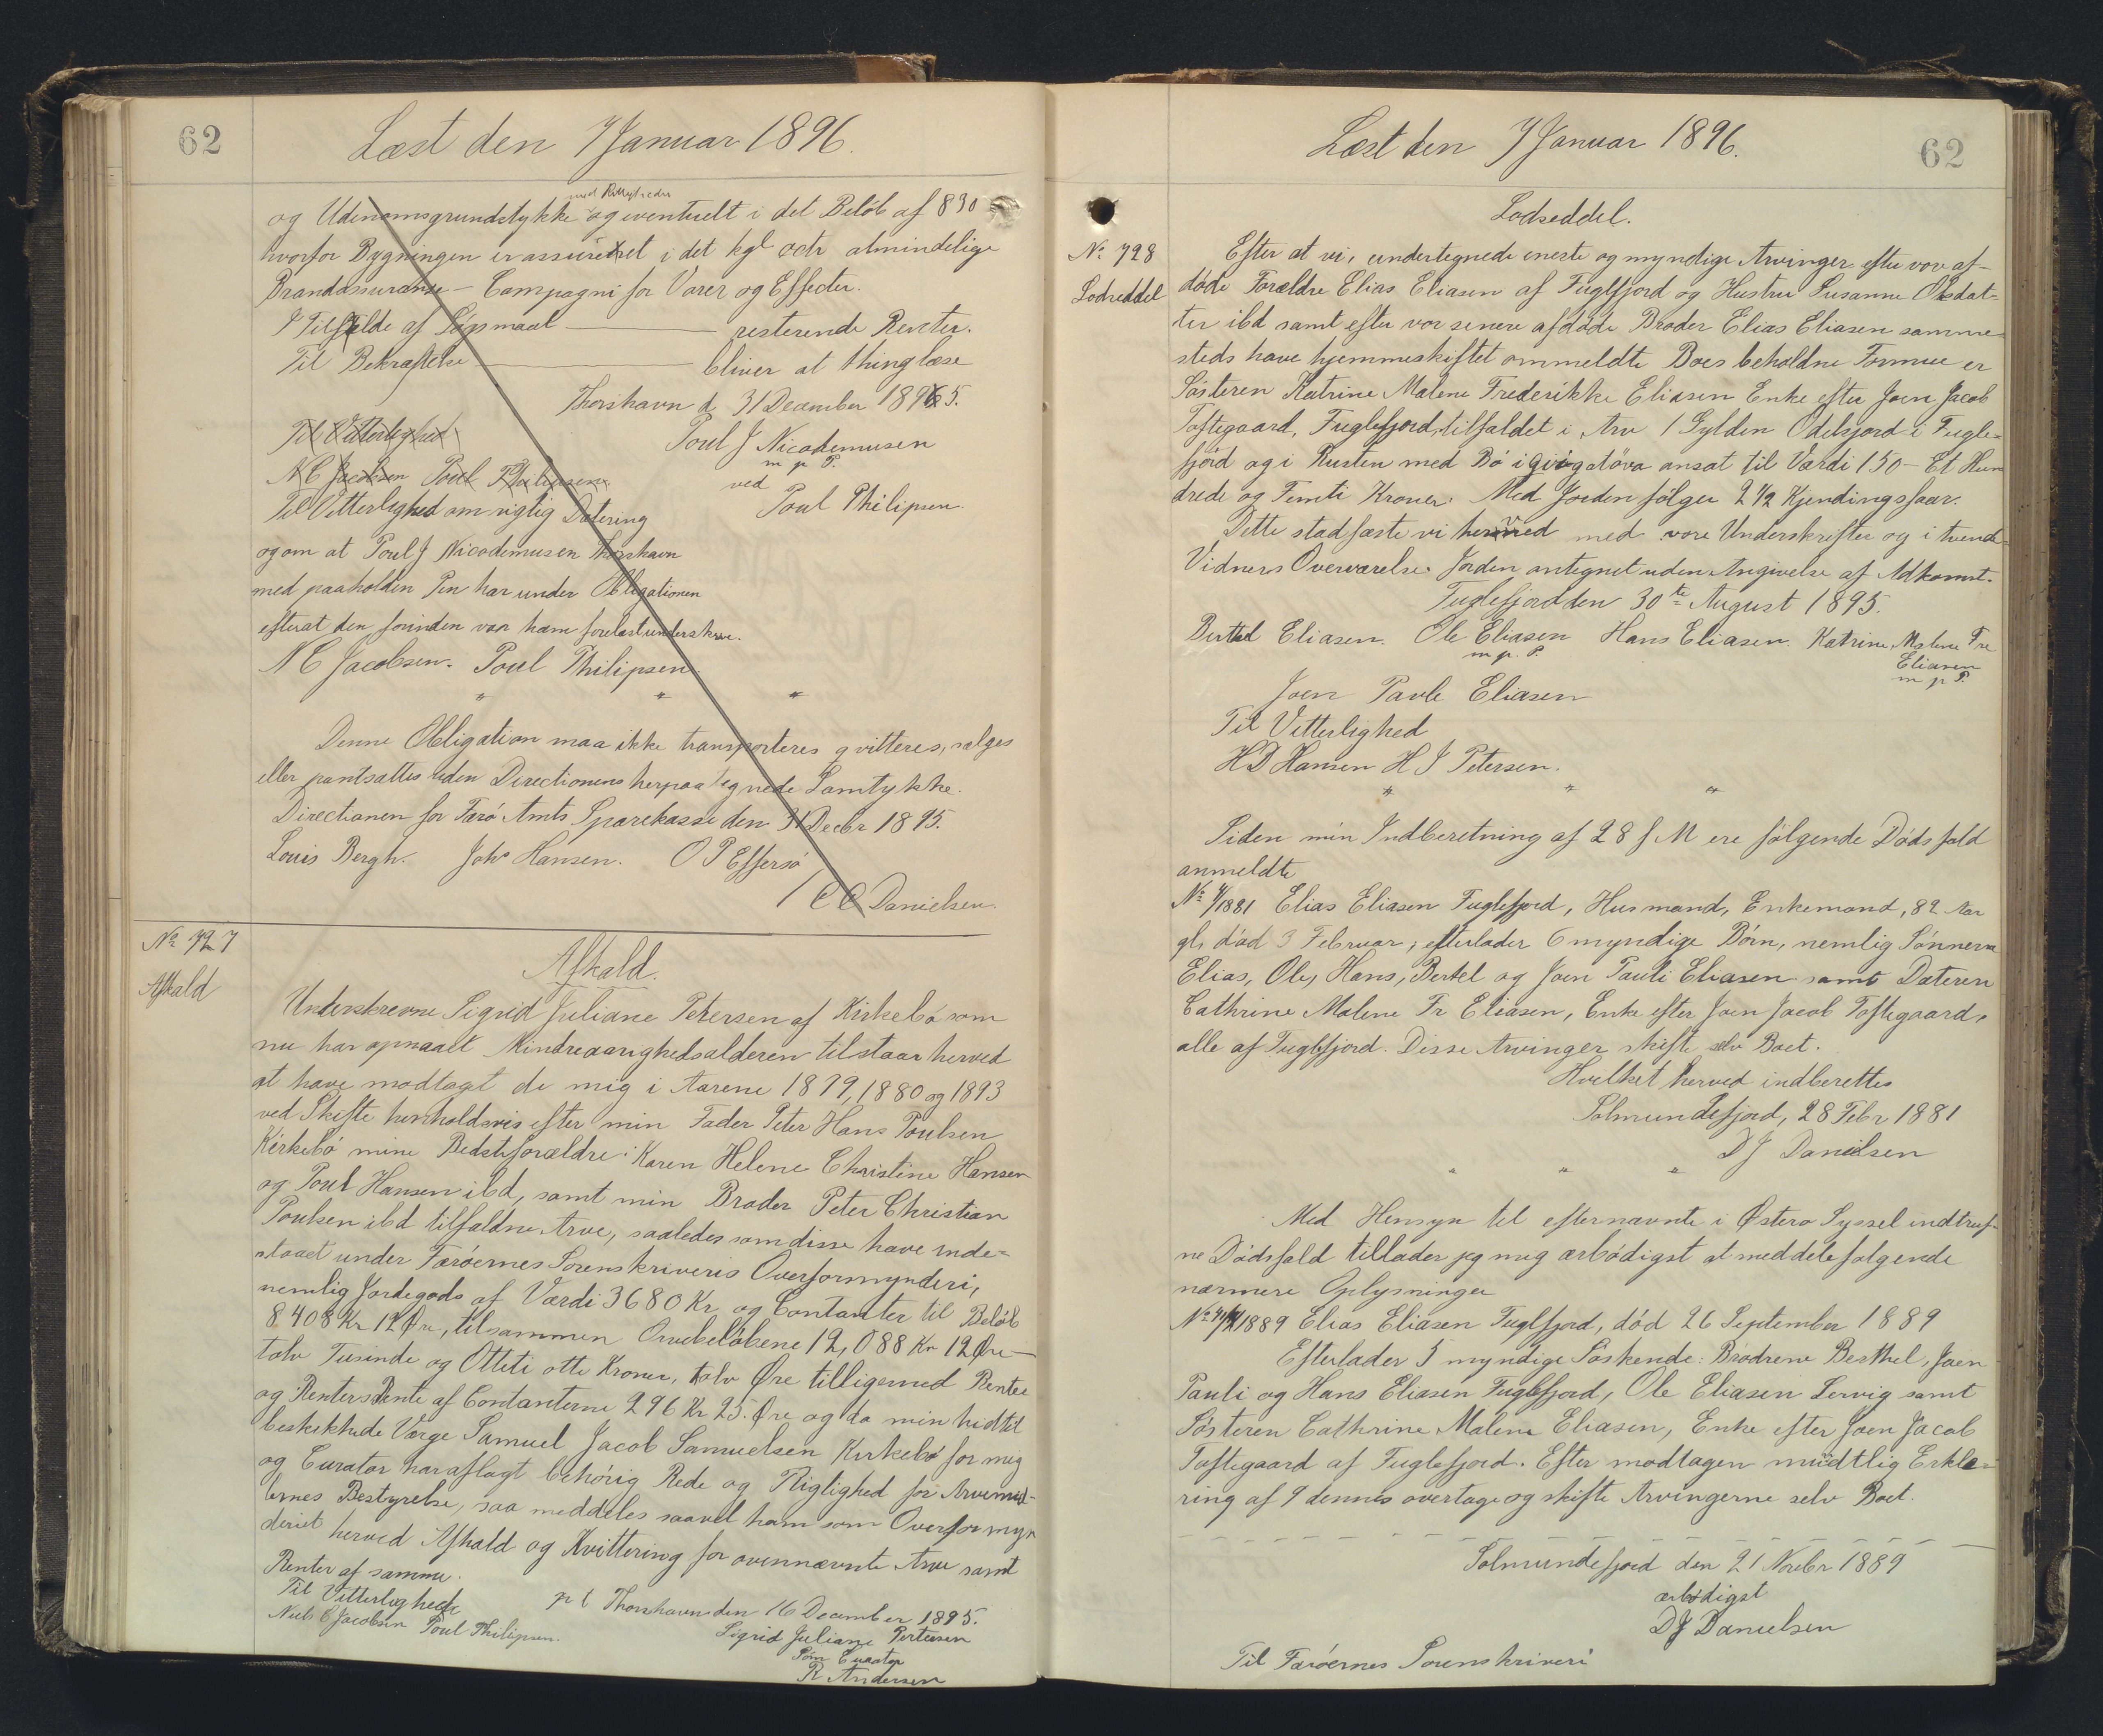 62
Læst den 7 Januar 1896.
med Rettigheder
og Udenomsgrundstykke og eventuelt i det Beløb af 830
hvorfor Bygningen er assureret i det kgl octr almindelige
Brandassurance-Compagni for Varer og Effecter.
I Tilfælde af Søgsmaal — resterende Renter.
Til Bekræftelse — bliver at thinglæse
Thorshavn d 31 December 1895.
Til Vitterlighed
Poul J Nicodemusen
m p P.
N C Jacobsen Poul Philipsen
ved
Til Vitterlighed om rigtig Datering
Poul Philipsen.
og om at Poul J Nicodemusen Thorshavn
med paaholden Pen har under Obligationen
efterat den forinden var ham forelæst underskrev.
N C Jacobsen. Poul Philipsen
" " "
Denne Obligation maa ikke transporteres qvitteres, sælges
eller pantsættes uden Directionens herpaa tegnede Samtykke.
Directionen for Færø Amts Sparekasse den 31 Decbr 1895.
Louis Bergh. Johs Hansen. O P Effersö
/ C C Danielsen.
No 727
Afkald
Afkald.
Underskrevne Sigrid Juliane Petersen af Kirkebö som
nu har opnaaet Mindreaarighedsalderen tilstaar herved
at have modtaget de mig i Aarene 1879, 1880 og 1893
ved Skifte henholdsvis efter min Fader Peter Hans Poulsen
Kirkebö mine Bedsteforældre: Karen Helene Christine Hansen
og Poul Hansen ibd, samt min Broder Peter Christian
Poulsen ibd tilfaldne Arve, saaledes som disse have inde=
staaet under Færöernes Sorenskriveris Overformynderi,
nemlig Jordegods af Værdi 3680 Kr og Contanter til Beløb
8.408 Kr 12 Øre, tilsammen Arvebeløbene 12,088 Kr 12 Øre —
tolv Tusinde og Otteti otte Kroner, tolv Øre tilligemed Renter
og Renters Rente af Contanterne 296 Kr 25. Øre og da min hidtil
beskikkede Værge Samuel Jacob Samuelsen Kirkebø for mig
og Curator har aflagt behørig Rede og Rigtighed for Arvemid-
lernes Bestyrelse, saa meddeles saavel ham som Overformyn
deriet herved Afkald og Kvittering for ovennævnte Arve samt
Renter af samme.
Til Vitterlighed
p t Thorshavn den 16 December 1895.
Niels C Jacobsen Poul Philipsen.
Sigrid Juliane Petersen
Som Curator
R Andersen
62
Læst den 7 Januar 1896.
Lodseddel.
No 728
Lodseddel
Efter at vi, undertegnede eneste og myndige Arvinger efter vore af-
døde Forældre Elias Eliasen af Fuglefjord og Hustru Susanne Olesdat=
ter ibd samt efter vor senere afdøde Broder Elias Eliasen samme
steds have hjemmeskiftet ommeldte Boes beholdne Formue er
Søsteren Katrine Malene Frederikke Eliasen Enke efter Joen Jacob
Toftegaard, Fuglefjord, tilfaldet i Arv 1 Gylden Odelsjord i Fugle=
fjord og i Rusten med Bø i ansat til Værdi 150 — Et Hun
drede og Femti Kroner. Med Jorden følger 2 1/2 Kjendingsfaar.
Dette stadfæste vi herved med vore Underskrifter og i tvende
Vidners Overværelse. Jorden antegnet uden Angivelse af Adkomst.
Fuglefjord den 30te August 1895.
Berthel Eliasen. Ole Eliasen Hans Eliasen. Katrine Malene Fre
m p. P.
Eliasen
m p P.
Joen Pavle Eliasen
Til Vitterlighed
H D Hansen H J Petersen.
" " "
Siden min Indberetning af 28 f M ere følgende Dødsfald
anmeldte
No 4/1881 Elias Eliasen Fuglefjord, Husmand, Enkemand, 82 Aar
gl, död 3 Februar, efterlader 6 myndige Börn, nemlig Sönnerne
Elias, Ole, Hans, Bertel og Joen Pauli Eliasen samt Dateren
Cathrine Malene Fr Eliasen, Enke efter Joen Jacob Toftegaard,
alle af Fuglefjord. Disse Arvinger skifte selv Boet.
Hvilket herved indberettes
Solmundefjord, 28 Febr 1881
D J Danielsen
" " "
Med Hensyn til efternævnte i Østerø Syssel indtruf-
ne Dødsfald tillader jeg mig ærbödigst at meddele følgende
nærmere Oplysninger
/1889 Elias Eliasen Fuglfjord, död 26 September 1889
Efterlader 5 myndige Söskende: Brødrene Berthel, Joen
Pauli og Hans Eliasen Fuglefjord, Ole Eliasen Lervig samt
Søsteren Cathrine Malene Eliasen, Enke efter Joen Jacob
Toftegaard af Fuglefjord. Efter modtagen mündtlig Erklæ=
ring af 9 dennes overtage og skifte Arvingerne selv Boet.
Solmundefjord den 21 Novbr 1889
ærbødigst
D J Danielsen
Til Færöernes Sorenskriveri